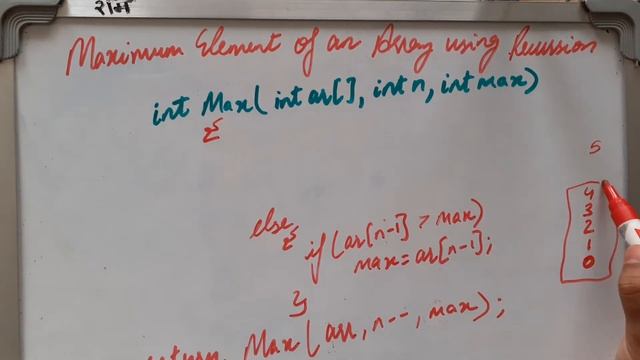 राम
Maximum Element of an Array using Recussion
int Max( int ar[], int n, int max)
{
5
4
3
2
1
0
else {
if (ar[n-1] > max)
max = ar[n-1];
}
return Max( arr, n--, max);